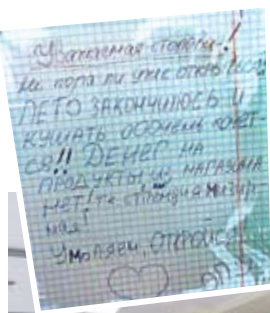 Уважаемая столовая!
не пора ли уже открыться
ЛЕТО ЗАКОНЧИЛОСЬ И
КУШАТЬ ОООЧЕНЬ ХОЧЕТ-
СЯ!! ДЕНЕГ НА
ПРОДУКТЫ ИЗ МАГАЗИНА
НЕТ!
Умоляем, ОТКРОЙСЯ